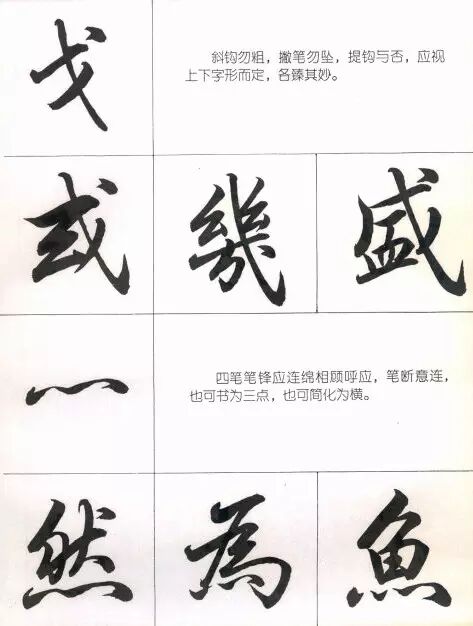 戈
斜钩勿粗，撇笔勿坠，提钩与否，应视
上下字形而定，各臻其妙。
或 幾 盛
灬
四笔笔锋应连绵相顾呼应，笔断意连，
也可书为三点，也可简化为横。
然 為 魚